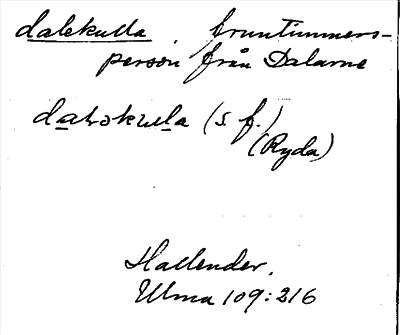 dalekulla, fruntimmers-
person från Dalarne
dalɘkulla (s. f.)
(Ryda)
Hallender.
Ulma 109:216